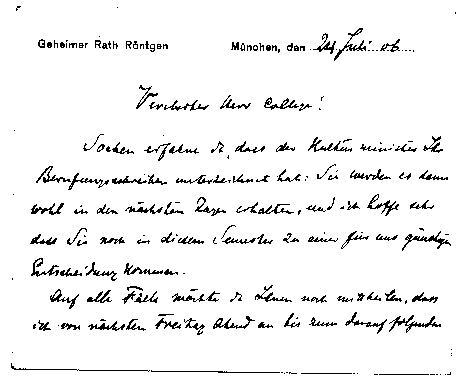 Geheimer Rath Röntgen München, den 24 Juli 06
Verehrter Herr College!
Soeben erfahre ich, dass der Kultusminister Ihr
Berufungsschreiben unterzeichnet hat: Sie werden es dann
wohl in den nächsten Tagen erhalten, und ich hoffe sehr
dass Sie noch in diesem Semester zu einer für uns günstigen
Entscheidung kommen.
Auf alle Fälle möchte ich Ihnen noch mittheilen, dass
ich von nächsten Freitag Abend an bis zum darauf folgenden